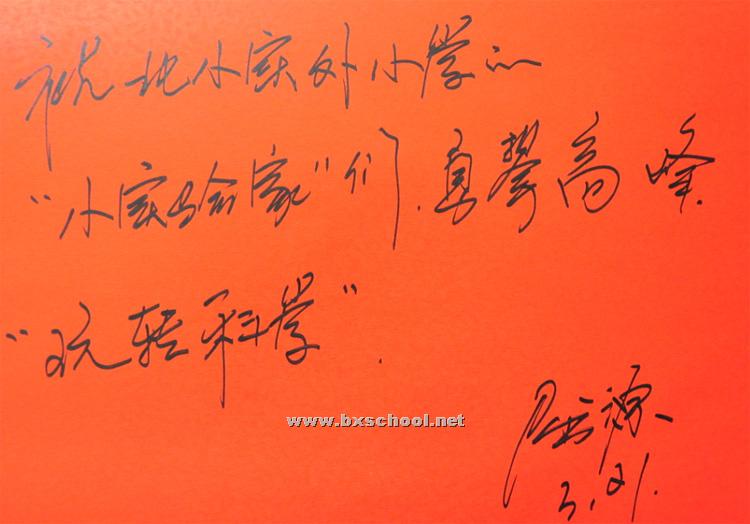 祝北小实外小学的
“小实验家”们.勇攀高峰.
“玩转科学”.
www.bxschool.net
3.21.